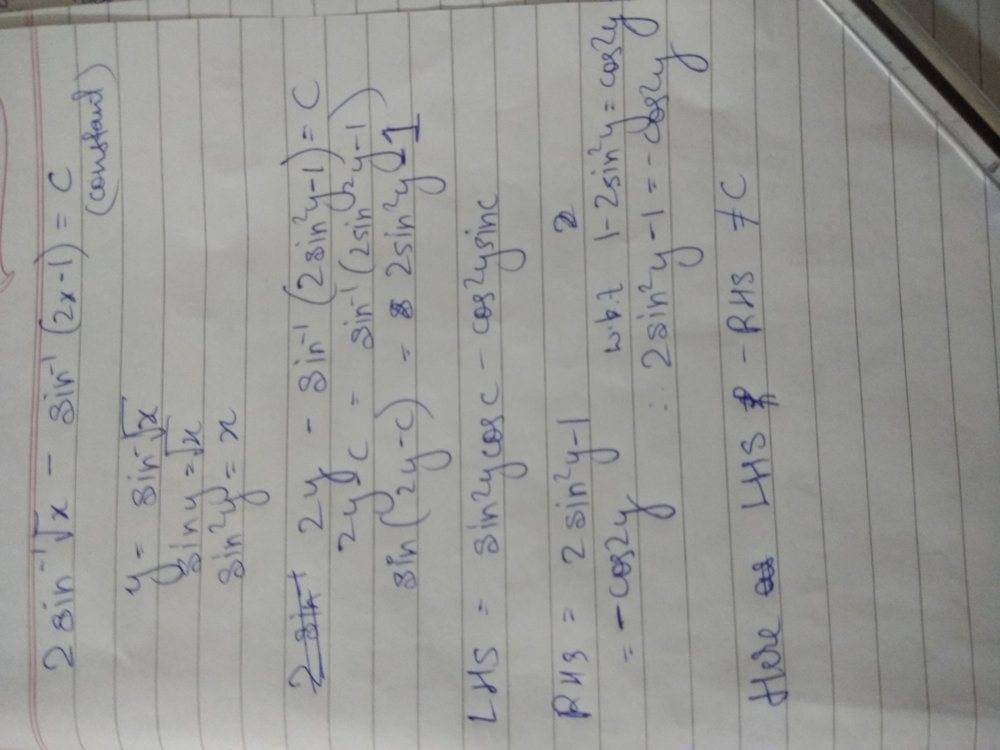 2 sin⁻¹√x − sin⁻¹ (2x−1) = C
(constant)
y = sin⁻¹√x
sin y = √x
sin²y = x
2y − sin⁻¹ (2sin²y−1) = C
2y − C = sin⁻¹ (2sin²y−1)
sin (2y−c) = 2sin²y−1
LHS = sin2ycosc − cos2ysinc
RHS = 2sin²y−1
w.k.t 1−2sin²y = cos2y
= −cos2y
∴ 2sin²y−1 = −cos2y
Here LHS − RHS ≠ C